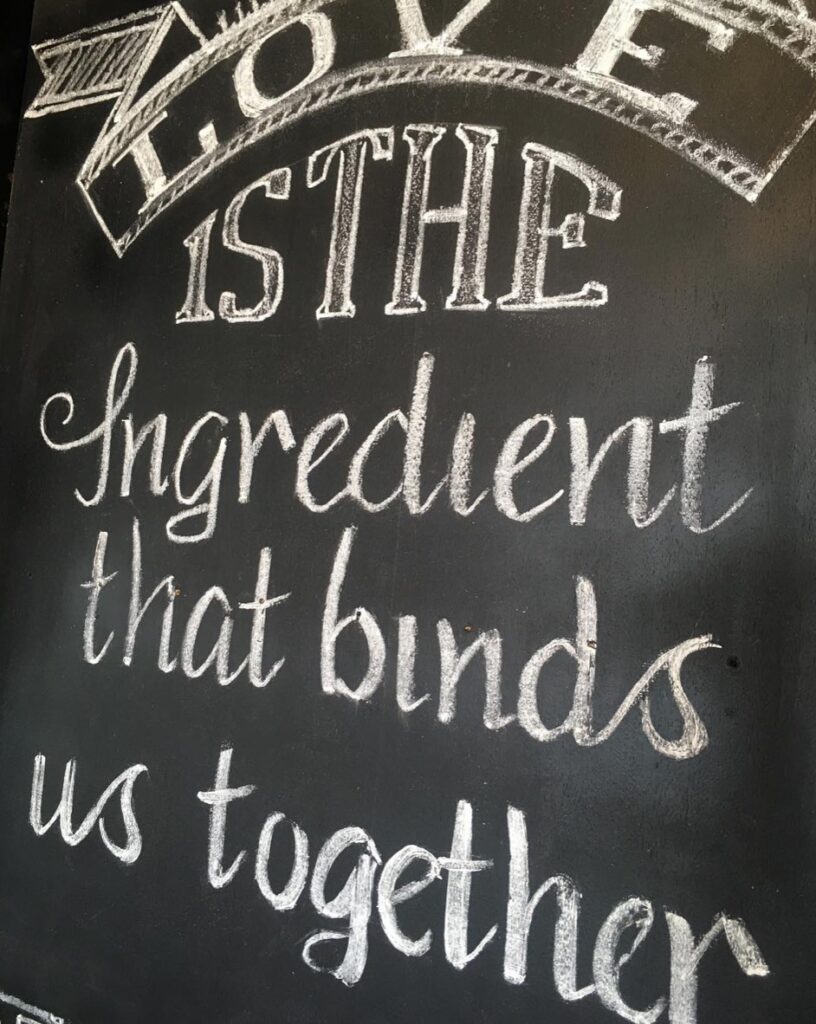 LOVE
IS THE
Ingredient
that binds
us together